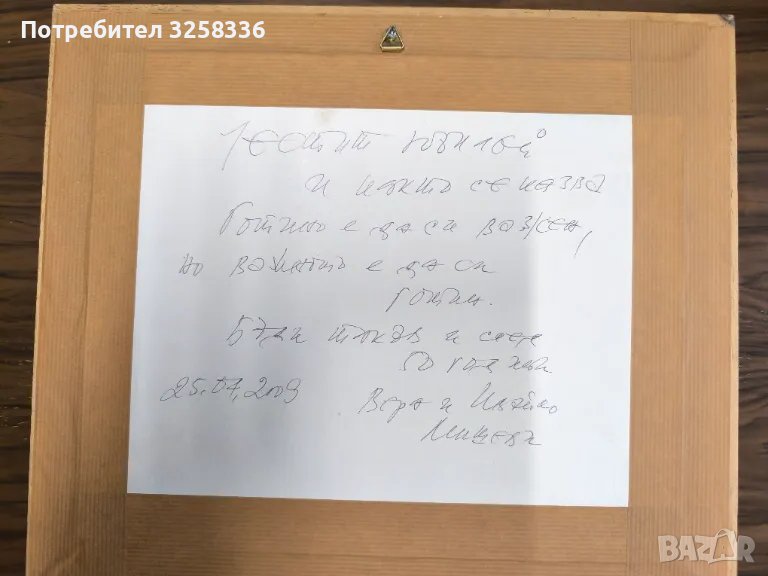 Потребител 3258336
Честит юбилей
и както се казва
Готино е да си важен,
но важното е да си
готин.
Бъди такъв и след
50 години
25.07.2009
Вера и Ивайло
Мишеви
BAZAR